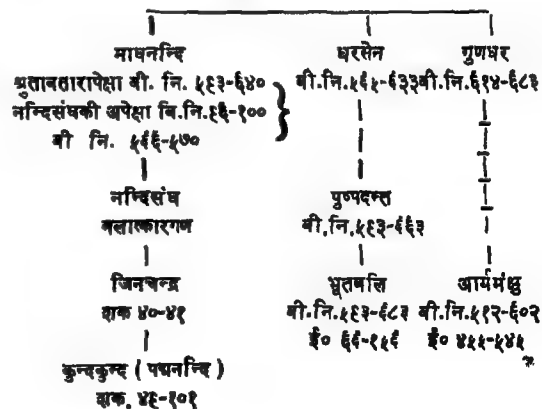 माघनन्दि
श्रुतावतारापेक्षा वी. नि. ५९३-६४०
नन्दिसंघकी अपेक्षा वि.नि.६६-१००
वी नि. ५६६-५७०
नन्दिसंघ
बलात्कारगण
जिनचन्द्र
शक ४०-४१
कुन्दकुन्द ( पद्मनन्दि )
शक. ४६-१०१
धरसेन
वी.नि.५६५-६३३
पुष्पदन्त
वी.नि.५९३-६६३
भूतबलि
वी.नि.५९३-६८३
ई० ६६-१५६
गुणधर
वी.नि.६१४-६८३
आर्यमंक्षु
वी.नि.५१२-६०२
ई० ४५५-५४५